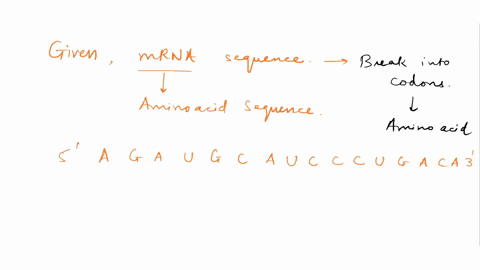 Given, mRNA sequence. → Break into
codons.
↓
↓
Aminoacid Sequence.
Aminoacid
5' A G A U G C A U C C C U G A C A 3'